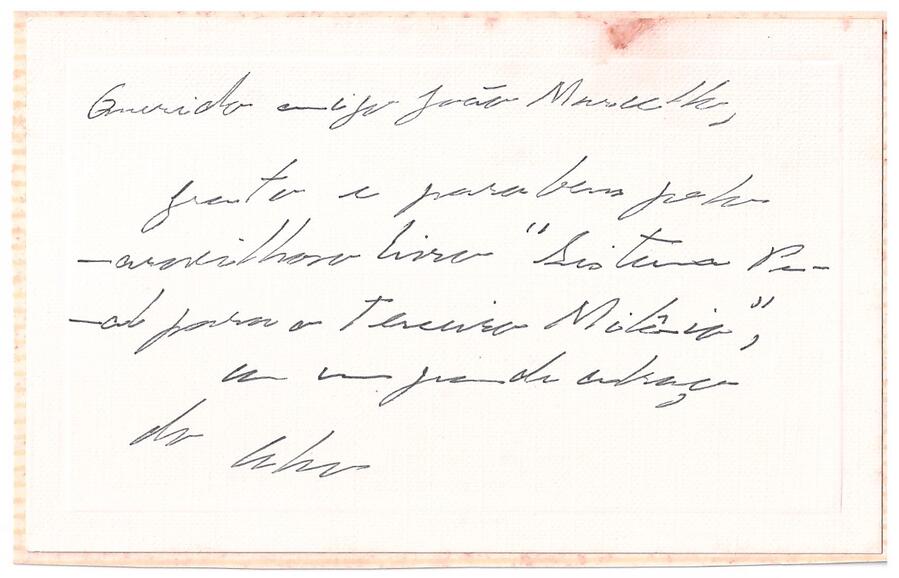 Querido amigo João Marcello,
grato e parabens pelo
maravilhoso livro "Sistema Pe-
nal para o Terceiro Milênio",
com um grande abraço
do